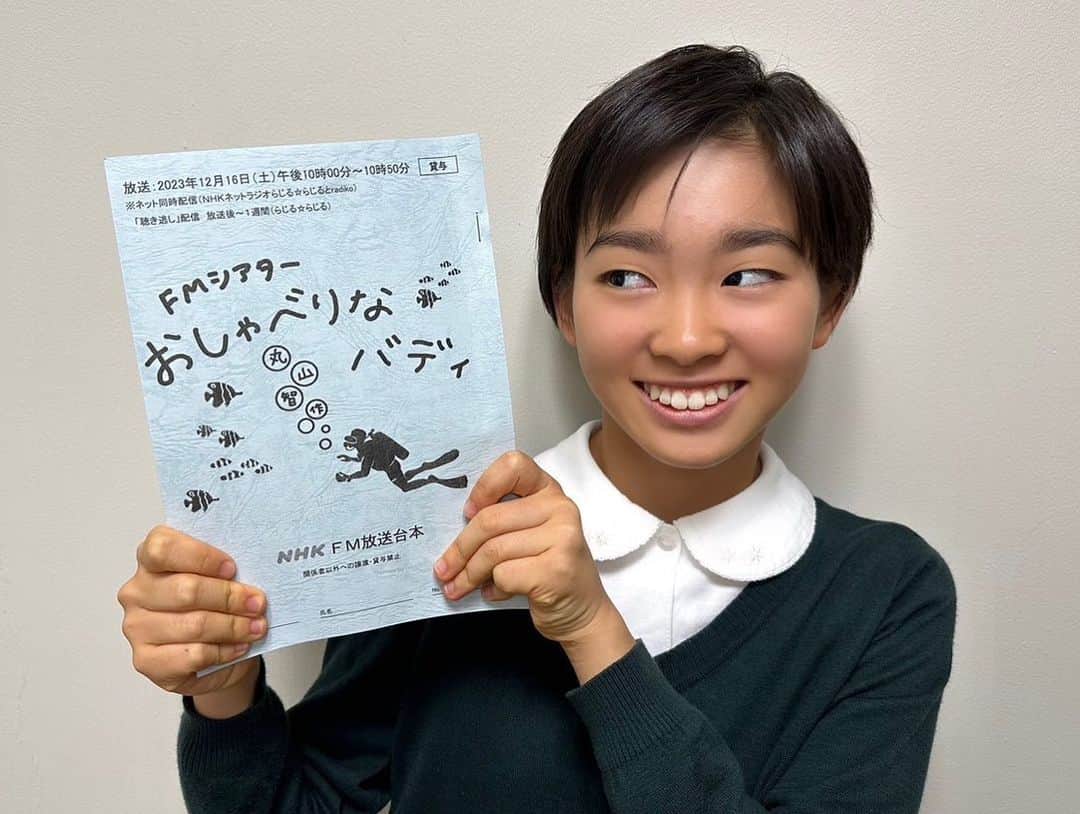 放送：2023年12月16日（土）午後10時00分～10時50分 貸与
※ネット同時配信（NHKネットラジオらじる☆らじるとradiko）
「聴き逃し」配信 放送後～1週間（らじる☆らじる）
FMシアター
おしゃべりな
バディ
丸山智作
NHK FM放送台本
関係者以外への譲渡・貸与禁止
氏名